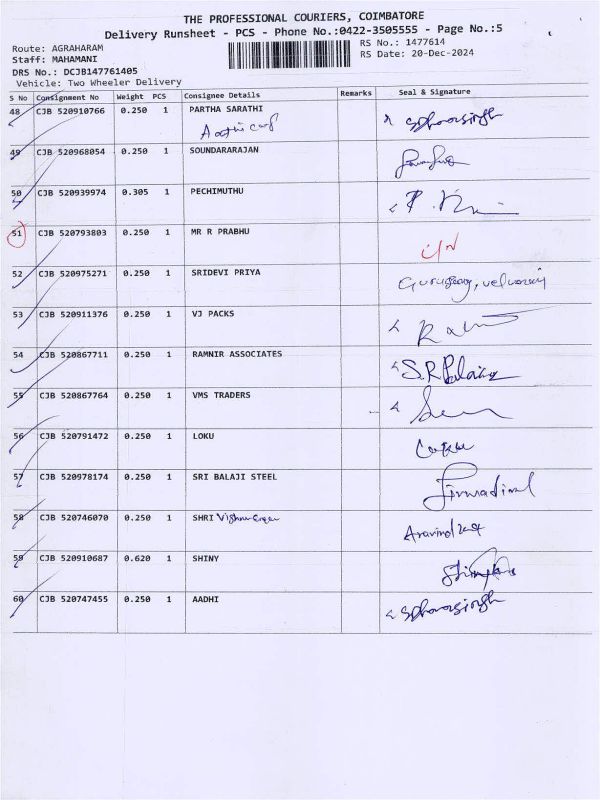 THE PROFESSIONAL COURIERS, COIMBATORE
Delivery Runsheet - PCS - Phone No.:0422-3505555 - Page No.:5
Route: AGRAHARAM
Staff: MAHAMANI
DRS No.: DCJB147761405
Vehicle: Two Wheeler Delivery
RS No.: 1477614
RS Date: 20-Dec-2024
S No Consignment No Weight PCS Consignee Details Remarks Seal & Signature
48 CJB 520910766 0.250 1 PARTHA SARATHI
49 CJB 520968054 0.250 1 SOUNDARARAJAN
50 CJB 520939974 0.305 1 PECHIMUTHU
51 CJB 520793803 0.250 1 MR R PRABHU
52 CJB 520975271 0.250 1 SRIDEVI PRIYA
53 CJB 520911376 0.250 1 VJ PACKS
54 CJB 520867711 0.250 1 RAMNIR ASSOCIATES
55 CJB 520867764 0.250 1 VMS TRADERS
56 CJB 520791472 0.250 1 LOKU
57 CJB 520978174 0.250 1 SRI BALAJI STEEL
58 CJB 520746070 0.250 1 SHRI
59 CJB 520910687 0.620 1 SHINY
60 CJB 520747455 0.250 1 AADHI